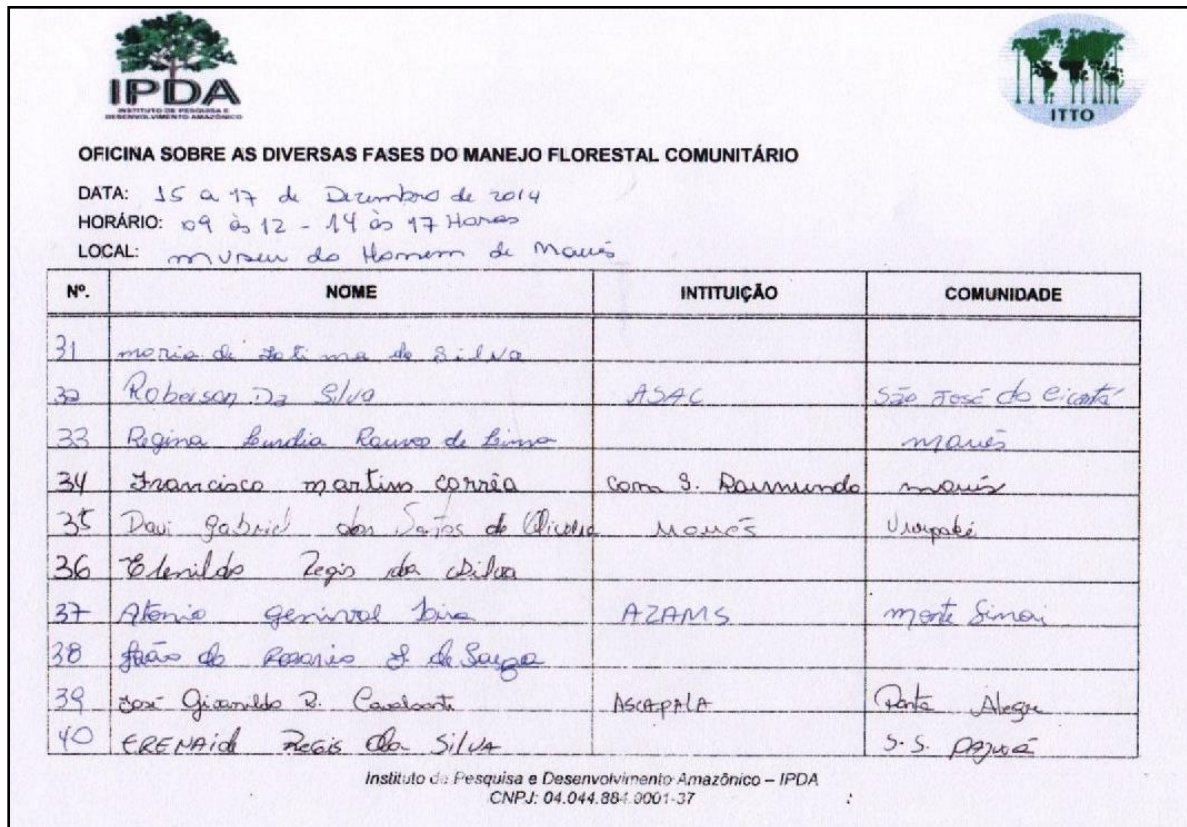 IPDA
INSTITUTO DE PESQUISA E
DESENVOLVIMENTO AMAZÔNICO
ITTO
OFICINA SOBRE AS DIVERSAS FASES DO MANEJO FLORESTAL COMUNITÁRIO
DATA: 15 a 17 de Dezembro de 2014
HORÁRIO: 09 às 12 - 14 às 17 Horas
LOCAL: museu do Homem de Maués
Nº. NOME INTITUIÇÃO COMUNIDADE
31 maria de Fatima da Silva
32 Roberson Da Silva ASAC São José do
33 Regina de Lima maués
34 Francisco martins corrêa Com S. Raimundo maués
35 Davi Gabriel dos Santos de Oliveira Maués
36 Elenildo Regis da Silva
37 Atonio Genival AZAMS monte Sinai
38 João do Rosario de Souza
39 José R. Cavalcanti ASCAPALA Ponta Alegre
40 ERENAid Regis da SilVA S.S.
Instituto de Pesquisa e Desenvolvimento Amazônico – IPDA
CNPJ: 04.044.884.0001-37